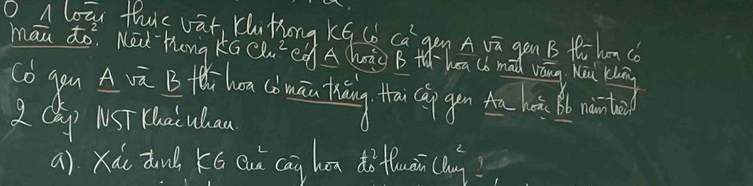 Ở 1 loài thực vật, khi trong KG có cả gen A và gen B thì hoa có
màu đỏ. Nếu trong KG chỉ có A hoặc B thì hoa có màu vàng. Nếu không
có gen A và B thì hoa có màu trắng. Hai cặp gen Aa hoặc Bb nằm trên
2 cặp NST khác nhau.
a). Xác định KG của cây hoa đỏ thuần chủng?